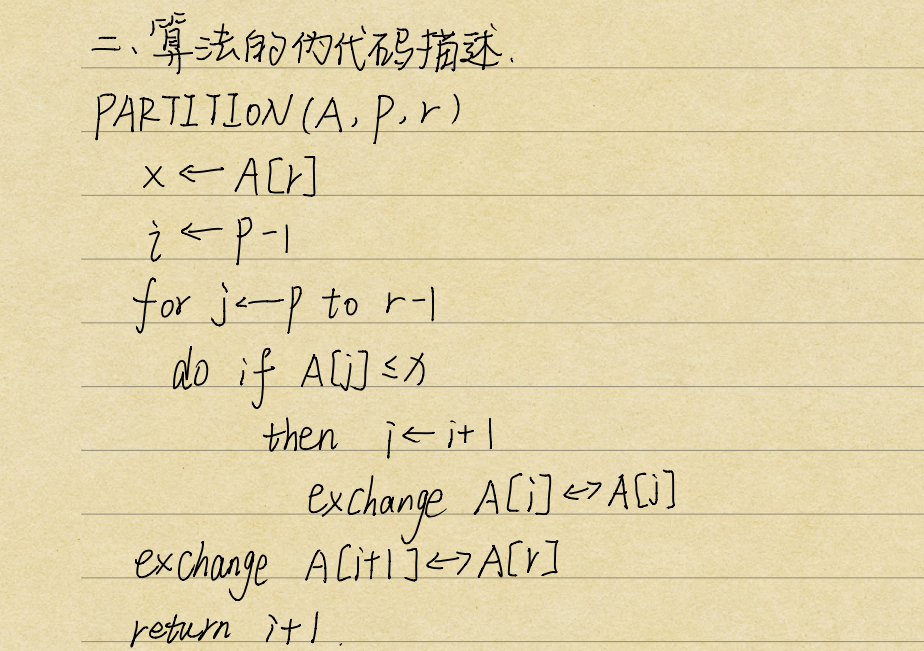 二、算法的伪代码描述.
PARTITION(A, p, r)
x ← A[r]
i ← p-1
for j ← p to r-1
do if A[j] ≤ x
then i ← i+1
exchange A[i] ↔ A[j]
exchange A[i+1] ↔ A[r]
return i+1.